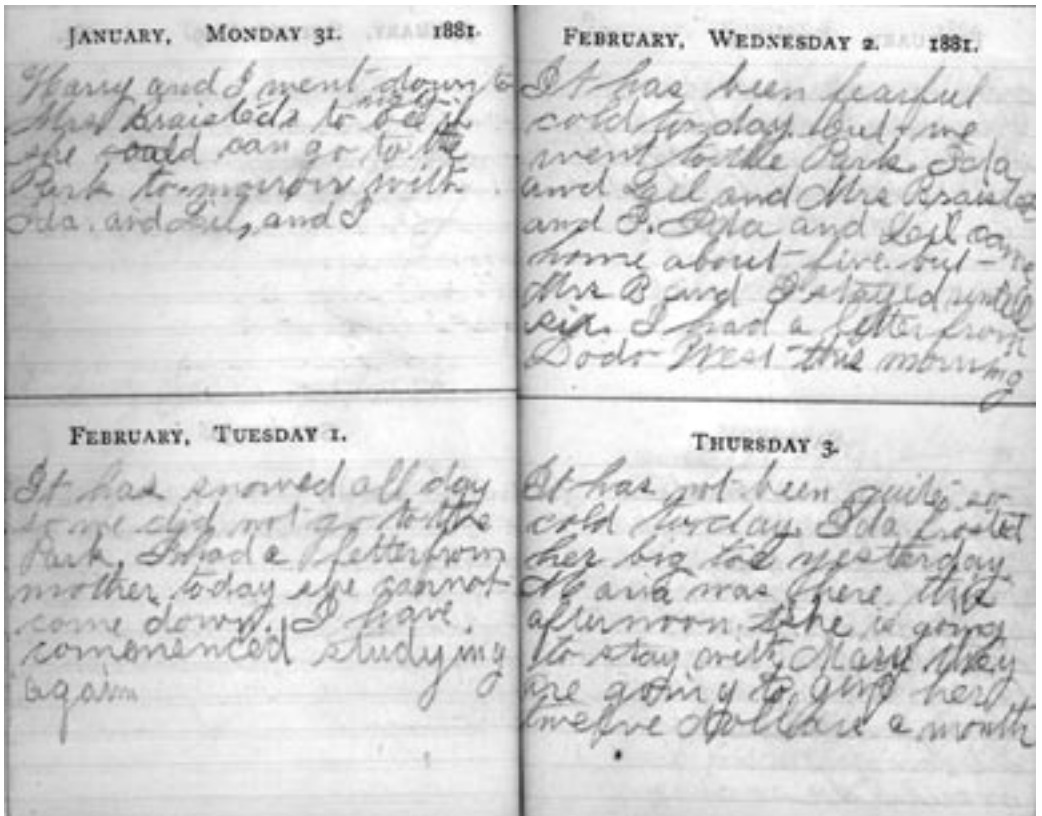 JANUARY, MONDAY 31. 1881.
Harry and I went down to
Mrs Braisteds to see if
she could can go to the
Park tomorrow with
Ida. and Lil, and I
FEBRUARY, TUESDAY 1.
It has snowed all day
so we did not go to the
Park, I had a letter from
mother today she cannot
come down. I have
commenced studying
again
FEBRUARY, WEDNESDAY 2. 1881.
It has been fearful
cold to day but we
went to the Park. Ida
and Lil and Mrs Braisted
and I. Ida and Lil came
home about five but
Mrs B and I stayed untill
six. I had a letter from
Dodo West this morning
THURSDAY 3.
It has not been quite so
cold to day. Ida frosted
her big toe yesterday
Maria was here this
afternoon. She is going
to stay with Mary they
are going to give her
twelve Dollars a month